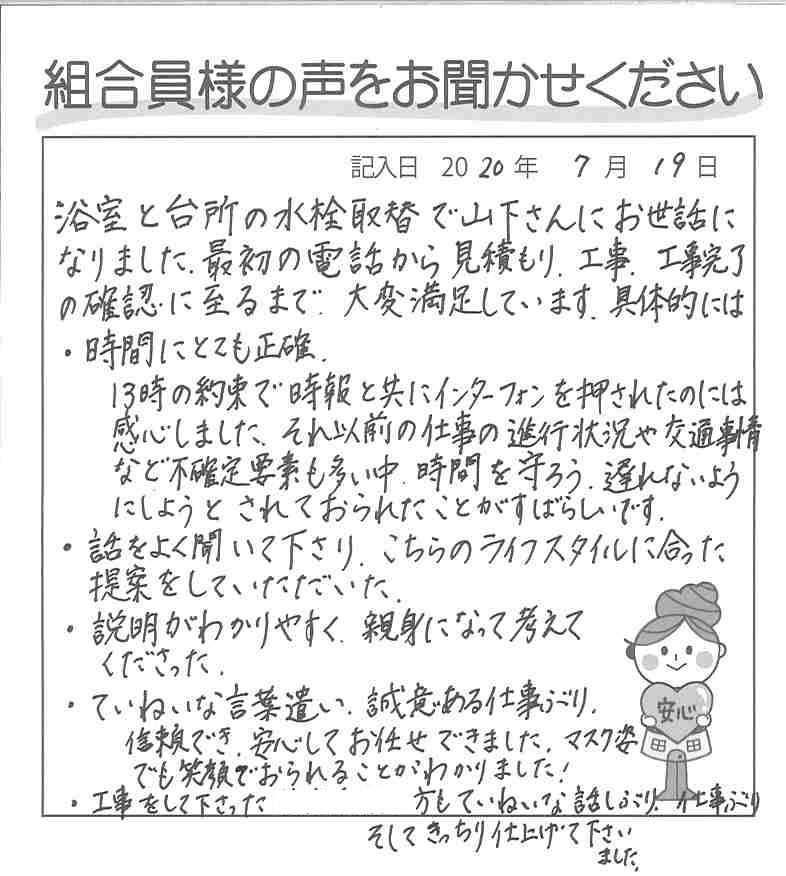 組合員様の声をお聞かせください
記入日 2020年 7月 19日
浴室と台所の水栓取替で山下さんにお世話に
なりました。最初の電話から見積もり、工事、工事完了
の確認に至るまで、大変満足しています。具体的には
・時間にとても正確。
13時の約束で時報と共にインターフォンを押されたのには
感心しました、それ以前の仕事の進行状況や交通事情
など不確定要素も多い中、時間を守ろう、遅れないよう
にしようとされておられたことがすばらしいです。
・話をよく聞いて下さり、こちらのライフスタイルに合った
提案をしていただいた。
・説明がわかりやすく、親身になって考えて
くださった。
・ていねいな言葉遣い、誠意ある仕事ぶり、
信頼でき、安心してお任せできました。マスク姿
でも笑顔でおられることがわかりました!
安心
・工事をして下さった 方もていねいな話しぶり、仕事ぶり
そしてきっちり仕上げて下さい
ました。